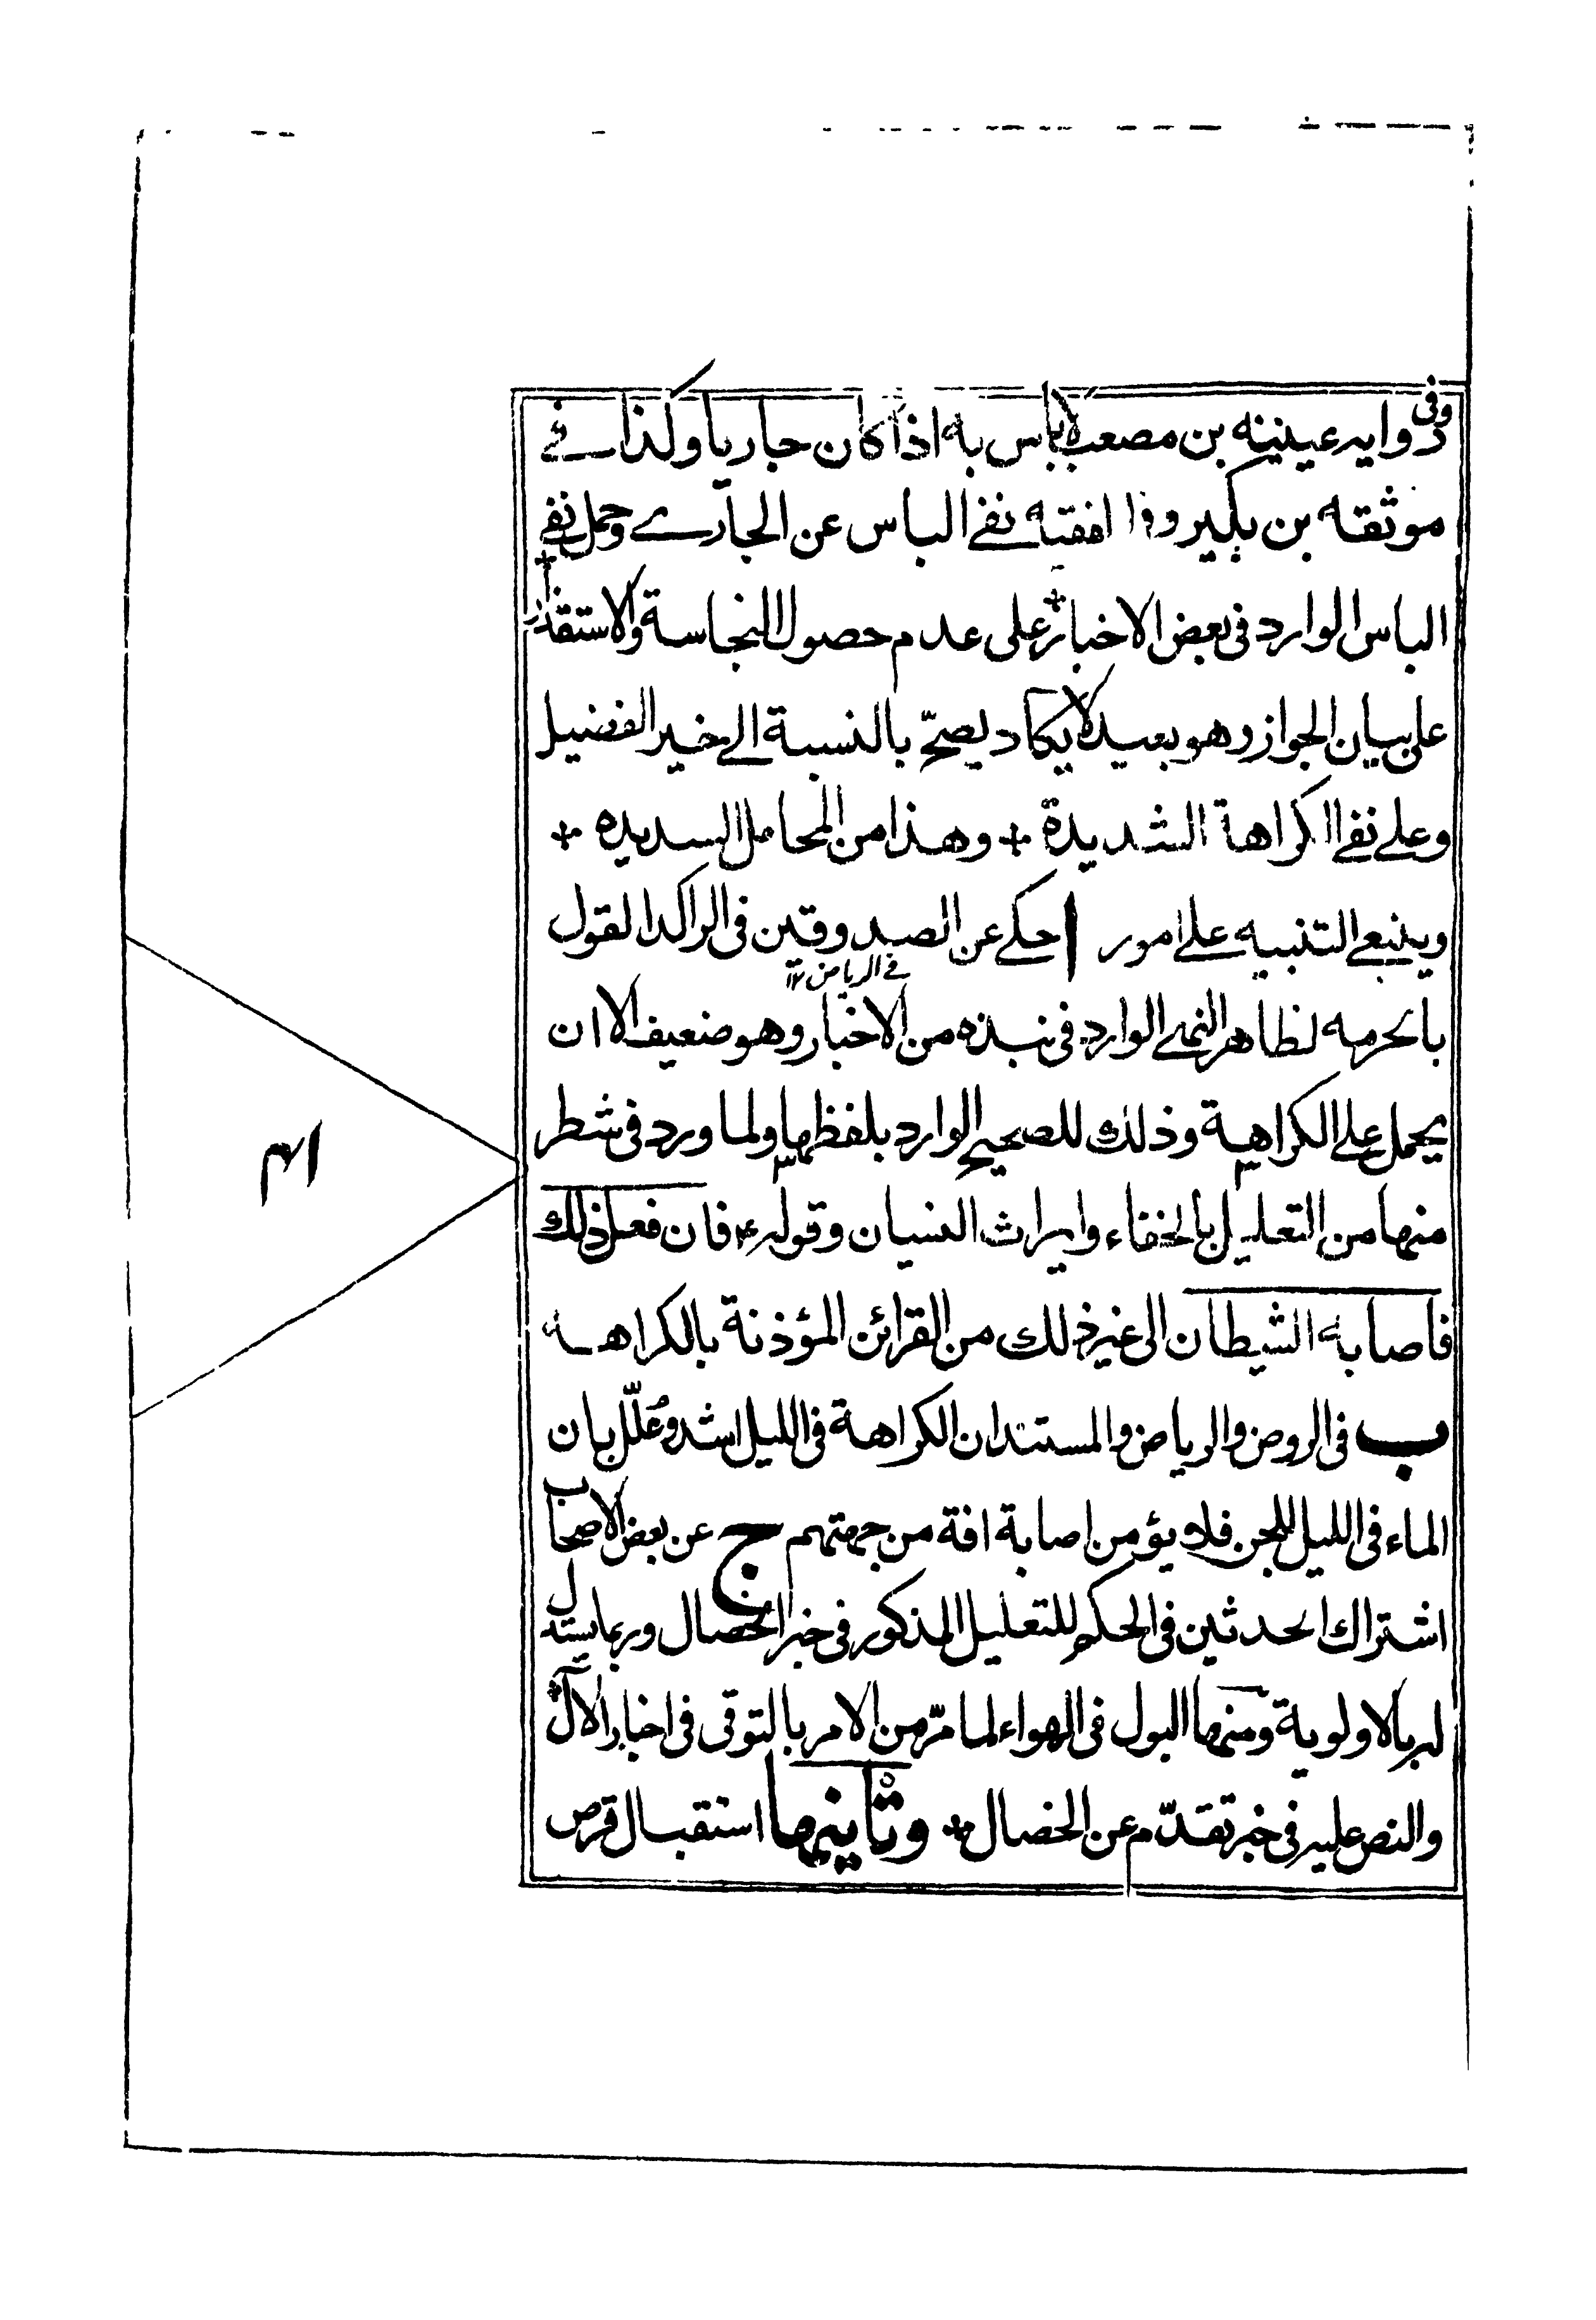 وفى رواية عيينه بن مصعب لاباس به اذا كان جاريا وكذا فے
موثقه بن بكير وفا افقيه نفے الباس عن الجارے وحمل نفے
الباس الوارد فى بعض الاخبار على عدم حصول النجاسة والاستقذار
على بيان الجواز وهو بعيد لا يكاد يصحّ بالنسبة الے خبر الفضيل
وعلے نفے الكراهة الشديدة وهذا من المحامل السديده
وينبغے التنبيه علے امور ا حكے عن الصدوقين فى الراكد القول
فے الرياض ١٢
بالحرمه لظاهر النهے الوارد فى نبذه من الاخبار وهو ضعيف الا ان
يحمل علے الكراهية وذلك للصحيح الوارد بلفظها ولما ورد فى شطر
منها من التعليل بالخفاء وايراث النسيان وقوله ع فان فعل ذلك
فاصابه الشيطان الى غير ذلك من القرائن المؤذنة بالكراهة
ب فى الروض والرياض والمستند ان الكراهة فى الليل اشد وعلّل بان
الماء فى الليل للجن فلا يؤمن اصابة افة من جهتهم ج عن بعض الاصحاب
اشتراك الحدثين فى الحكم للتعليل المذكور فى خبر الخصال وربما يستدل
له بالاولوية ومنها البول فى الهواء لما مرّ من الامر بالتوقى فى اخبار الآل
والنص عليه فى خبر تقدّم عن الخصال وثانيها استقبال قرص